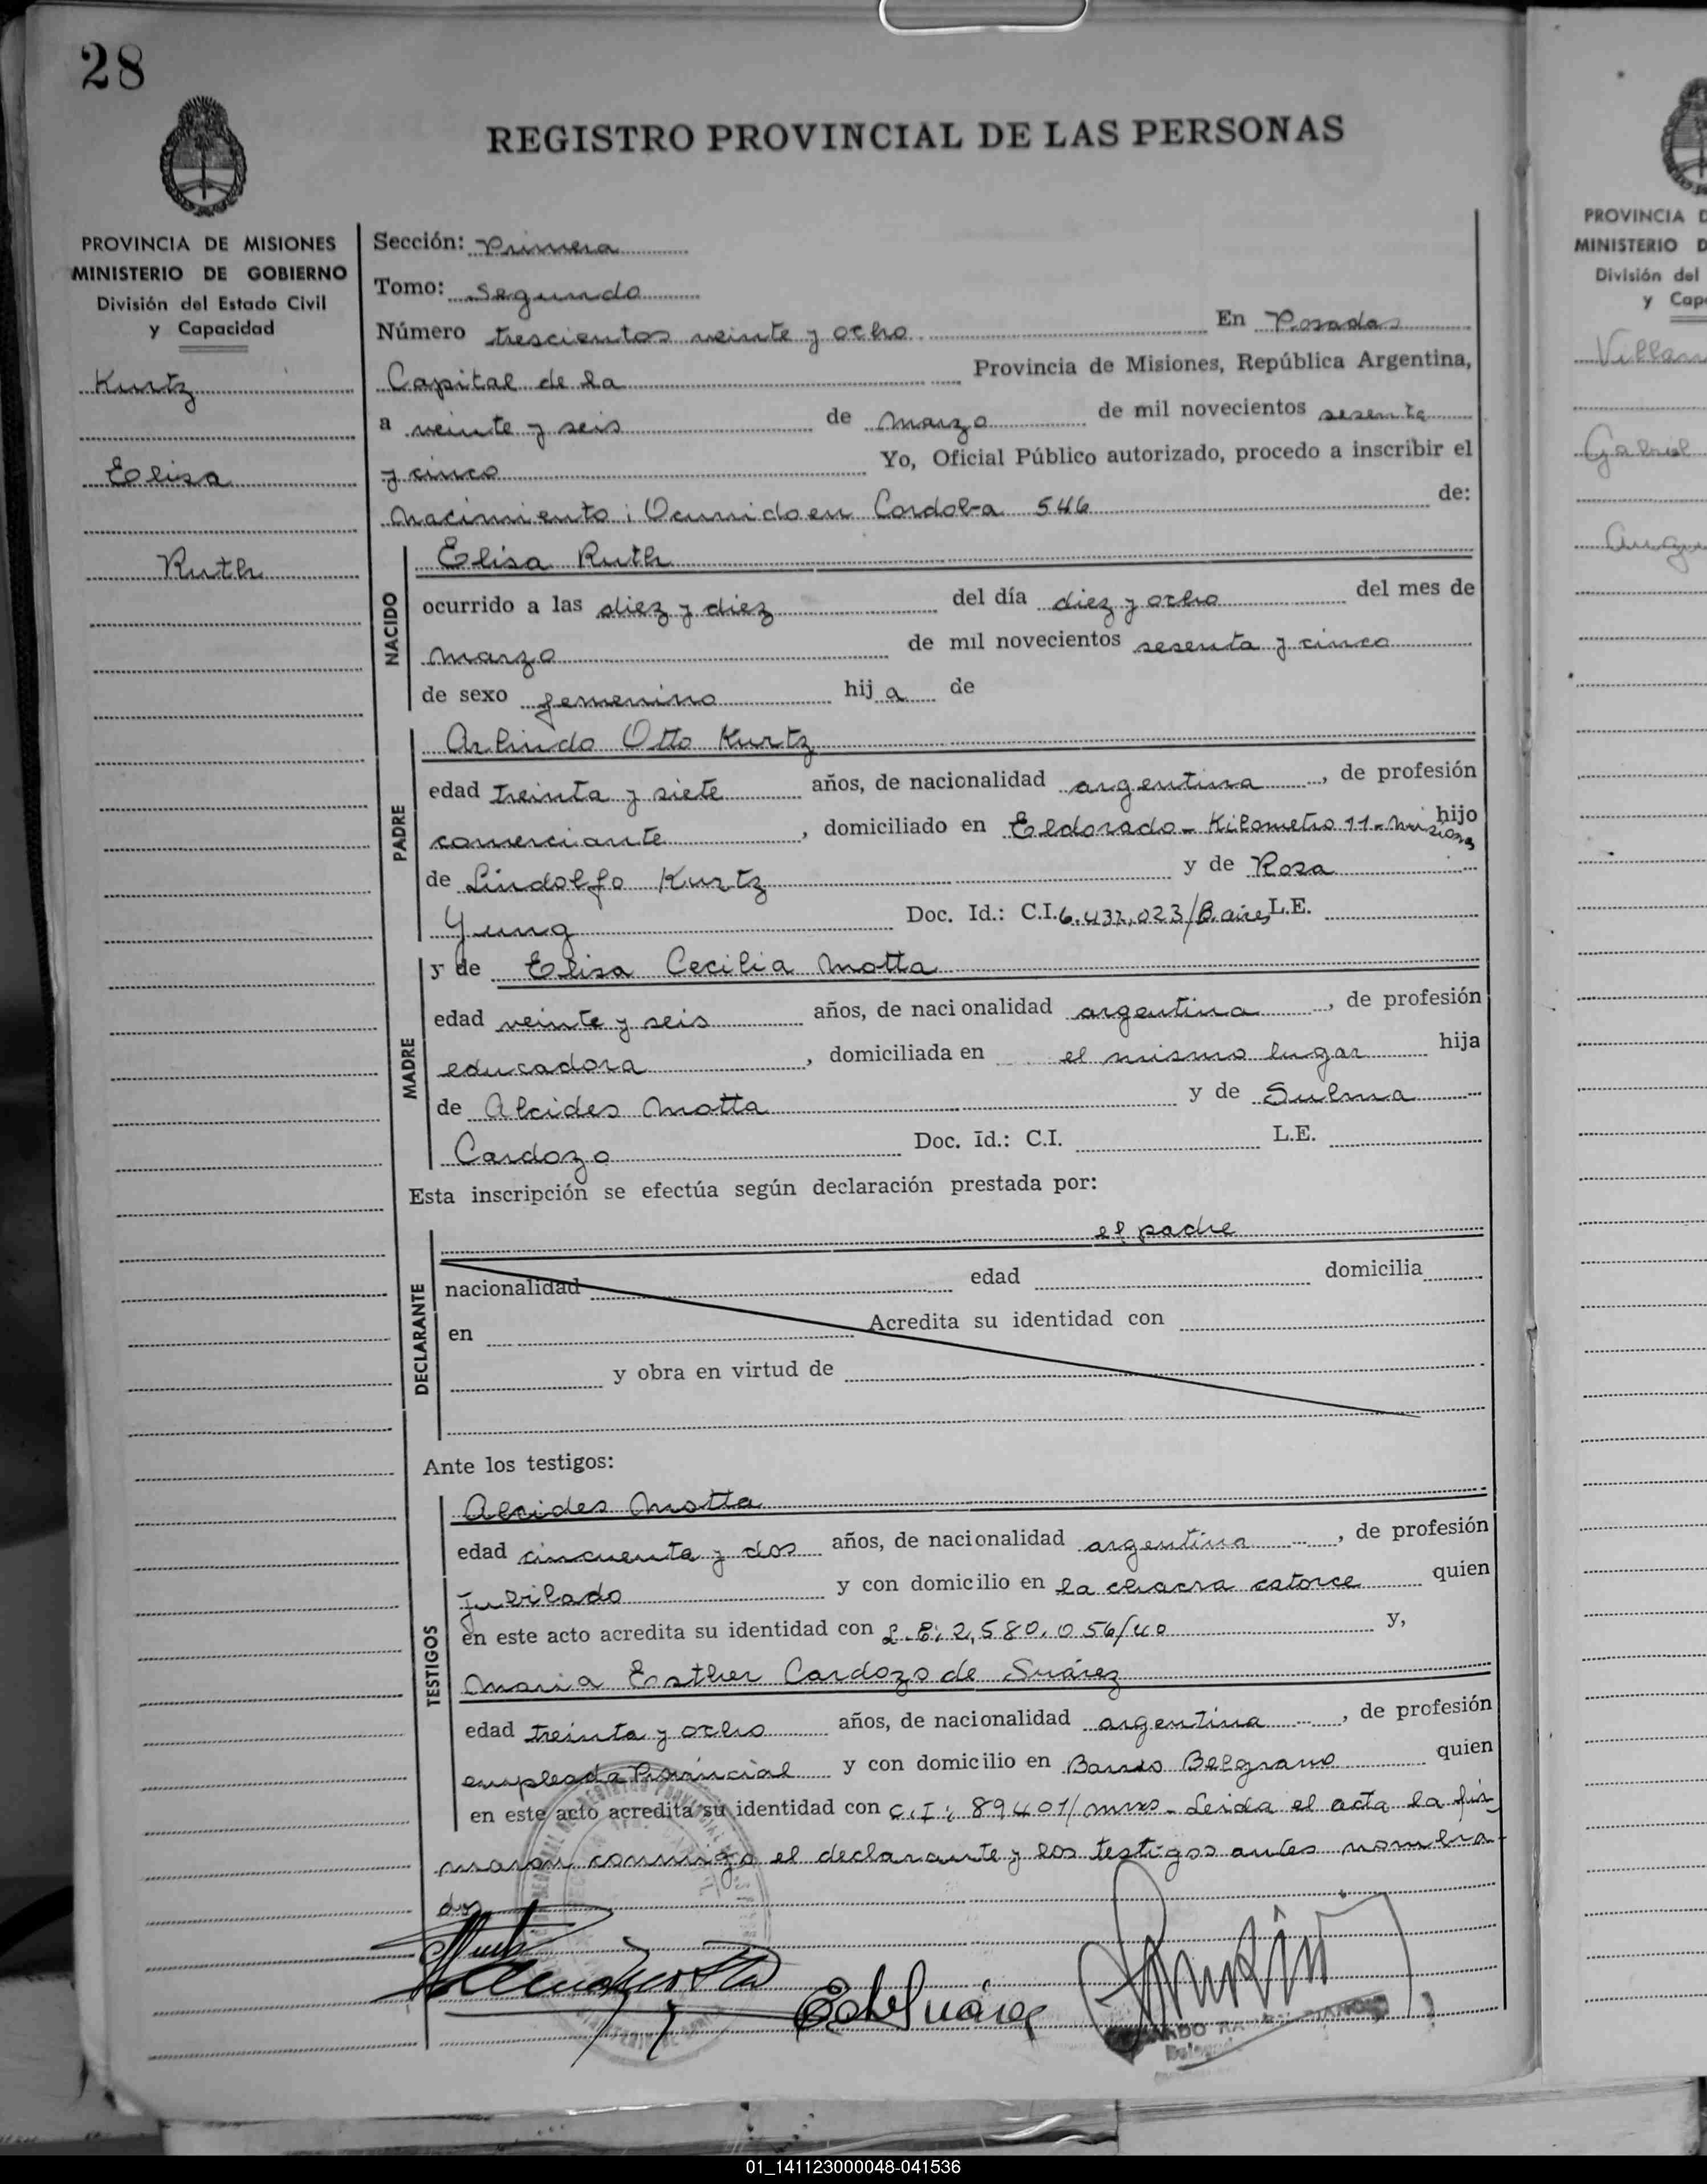 28
REGISTRO PROVINCIAL DE LAS PERSONAS
PROVINCIA DE MISIONES
MINISTERIO DE GOBIERNO
División del Estado Civil
y Capacidad
Kurtz
Elisa
Ruth
Sección: Primera
Tomo: Segundo
Número trescientos veinte y ocho En Posadas
Capital de la Provincia de Misiones, República Argentina,
a veinte y seis de marzo de mil novecientos sesenta
y cinco Yo, Oficial Público autorizado, procedo a inscribir el
nacimiento: Ocurrido en Cordoba 546 de:
NACIDO
Elisa Ruth
ocurrido a las diez y diez del día diez y ocho del mes de
marzo de mil novecientos sesenta y cinco
de sexo femenino hij a de
PADRE
Arlindo Otto Kurtz
edad treinta y siete años, de nacionalidad argentina, de profesión
comerciante, domiciliado en Eldorado - Kilometro 11 - misiones hijo
de Lindolfo Kurtz y de Rosa
Yung Doc. Id.: C.I. 6.437.023/B. aires L.E.
MADRE
y de Elisa Cecilia Motta
edad veinte y seis años, de nacionalidad argentina, de profesión
educadora, domiciliada en el mismo lugar hija
de Alcides Motta y de Sulma
Cardozo Doc. Id.: C.I. L.E.
Esta inscripción se efectúa según declaración prestada por:
DECLARANTE
el padre
nacionalidad edad domicilia
en Acredita su identidad con
y obra en virtud de
Ante los testigos:
TESTIGOS
Alcides Motta
edad cincuenta y dos años, de nacionalidad argentina, de profesión
jubilado y con domicilio en la chacra catorce quien
en este acto acredita su identidad con L.E: 2,580.056/40 y,
Maria Esther Cardozo de Suárez
edad treinta y ocho años, de nacionalidad argentina, de profesión
empleada Provincial y con domicilio en Barrio Belgrano quien
en este acto acredita su identidad con C.I: 89401/mnes - Leida el acta la fir
maron conmigo el declarante y los testigos antes nombra-
dos
EdeSuárez
PROVINCIA D
MINISTERIO D
División del
y Capa
Gabriel
01_141123000048-041536